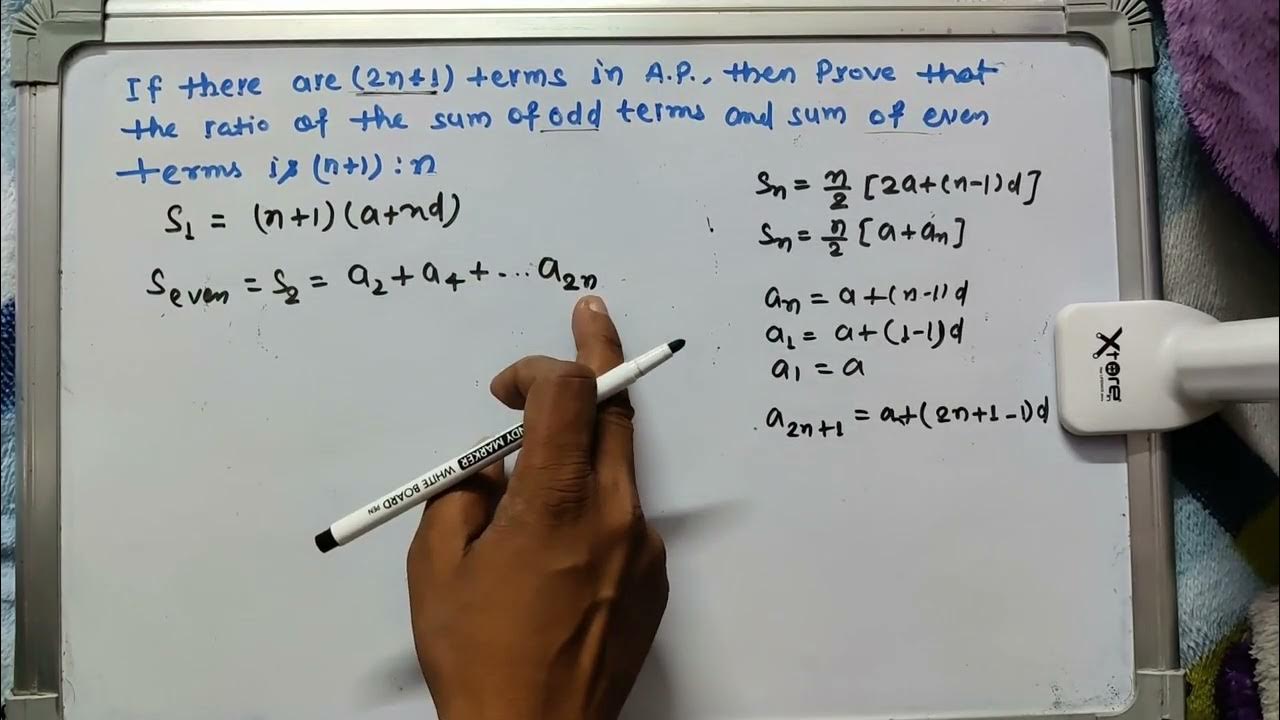 If there are (2n+1) terms in A.P., then Prove that
the ratio of the sum of odd terms and sum of even
terms is (n+1) : n
S₁ = (n+1)(a+nd)
S_even = S₂ = a₂ + a₄ + ... a₂ₙ
Sₙ = n/2 [2a+(n-1)d]
Sₙ = n/2 [a+aₙ]
aₙ = a+(n-1)d
a₁ = a+(1-1)d
a₁ = a
a₂ₙ₊₁ = a+(2n+1-1)d
WHITE BOARD MARKER
PEN
Xtore